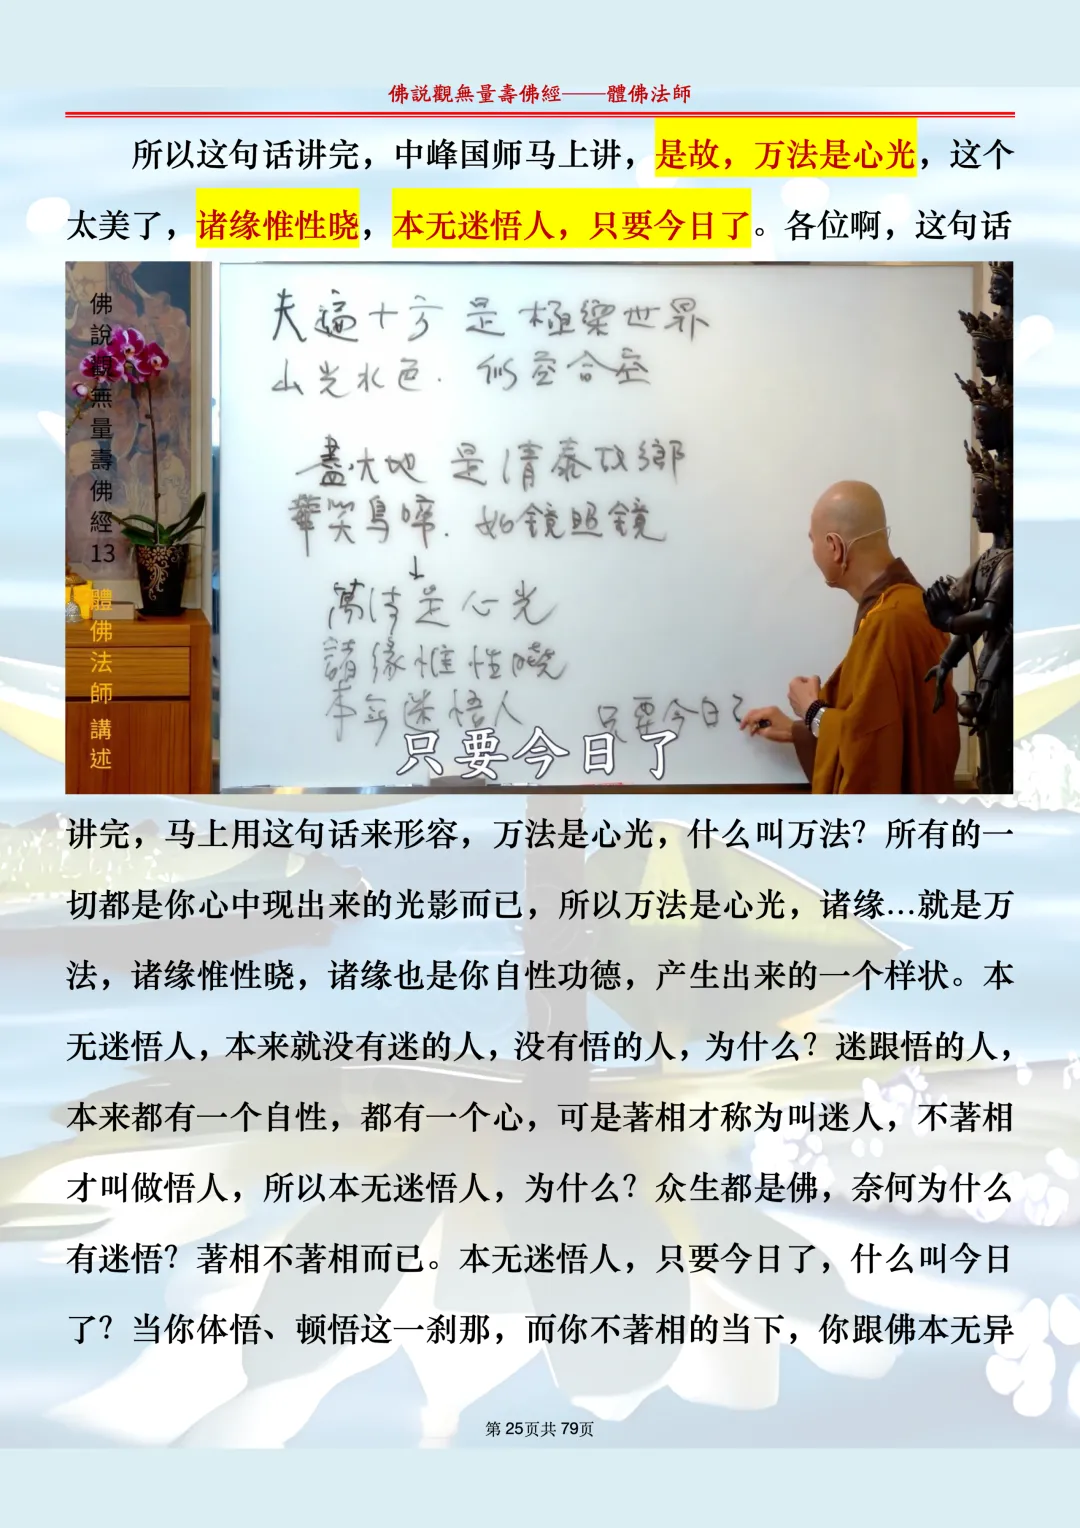 佛說觀無量壽佛經——體佛法師
所以这句话讲完，中峰国师马上讲，是故，万法是心光，这个
太美了，诸缘惟性晓，本无迷悟人，只要今日了。各位啊，这句话
佛說觀無量壽佛經13 體佛法師 講述
夫遍十方 是 極樂世界
山光水色． 似空合空
盡大地 是清泰故鄉
華笑鳥啼． 如鏡照鏡
↓
萬法是心光
諸緣惟性曉
本無迷悟人 只要今日了
只要今日了
讲完，马上用这句话来形容，万法是心光，什么叫万法？所有的一
切都是你心中现出来的光影而已，所以万法是心光，诸缘...就是万
法，诸缘惟性晓，诸缘也是你自性功德，产生出来的一个样状。本
无迷悟人，本来就没有迷的人，没有悟的人，为什么？迷跟悟的人，
本来都有一个自性，都有一个心，可是著相才称为叫迷人，不著相
才叫做悟人，所以本无迷悟人，为什么？众生都是佛，奈何为什么
有迷悟？著相不著相而已。本无迷悟人，只要今日了，什么叫今日
了？当你体悟、顿悟这一刹那，而你不著相的当下，你跟佛本无异
第 25页共 79页